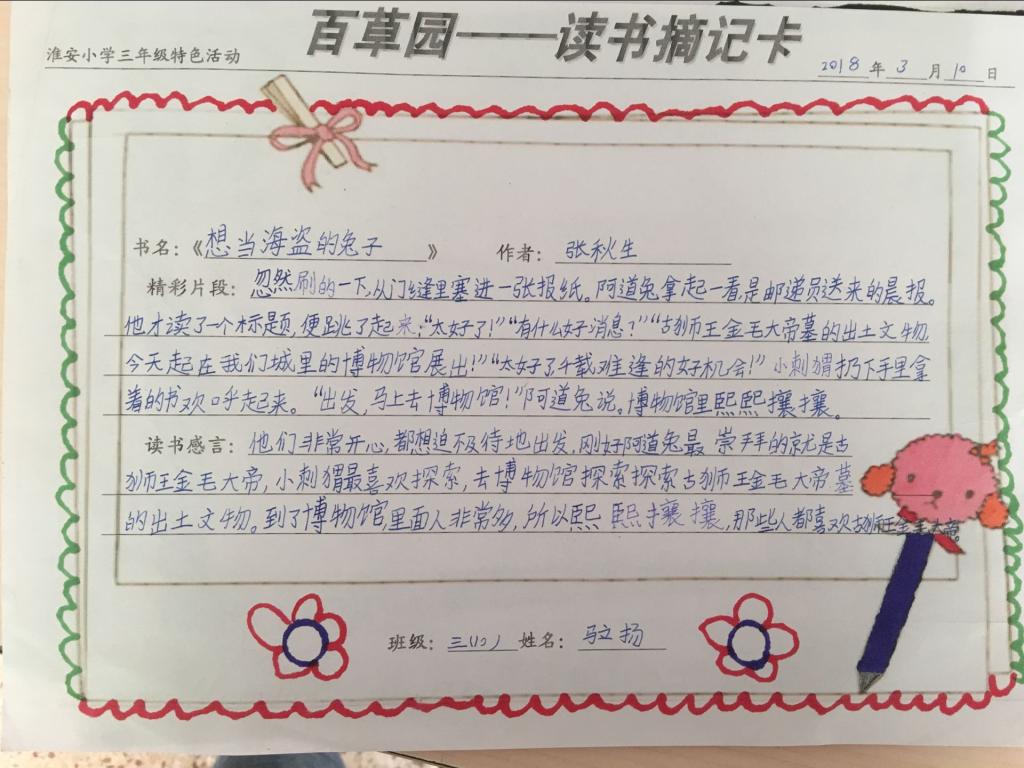 百草园——读书摘记卡
淮安小学三年级特色活动
2018年3月10日
书名：《想当海盗的兔子》 作者：张秋生
精彩片段：忽然刷的一下，从门缝里塞进一张报纸。阿道兔拿起一看是邮递员送来的晨报。
他才读了一个标题，便跳了起来：“太好了！”“有什么好消息？”“古狮王金毛大帝墓的出土文物
今天起在我们城里的博物馆展出！”“太好了，千载难逢的好机会！”小刺猬扔下手里拿
着的书欢呼起来。“出发，马上去博物馆！”阿道兔说。博物馆里熙熙攘攘。
读书感言：他们非常开心，都想迫不及待地出发，刚好阿道兔最崇拜的就是古
狮王金毛大帝，小刺猬最喜欢探索，去博物馆探索探索古狮王金毛大帝墓
的出土文物。到了博物馆，里面人非常多，所以熙熙攘攘，那些人都喜欢古狮王金毛大帝。
班级：三（10） 姓名：马文扬